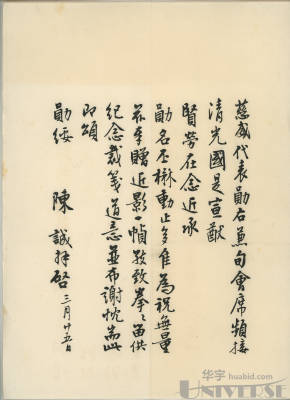 代表勛右兼旬會席頻接
清光國是宣猷
賢勞在念近承
勛名丕楙動止多佳為祝無量
茲奉贈近影一幀敬致拳拳留供
紀念裁箋道意並布謝忱耑此
即頌
勛綏 陳誠拜啓 三月廿五日
华宇 huabid.com
UNIVERSE